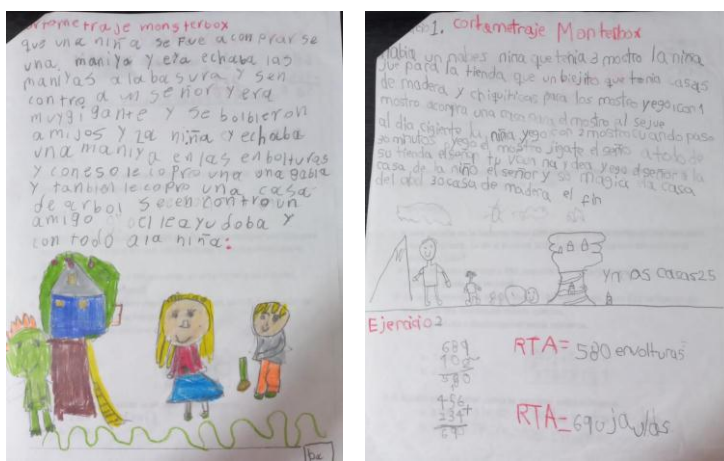 ortometraje monsterbox
que una niña se fue a comprar se
una maniya y eya echaba las
maniyas a la basura y sen
contro a un señor y era
muy gigante y se bolbieron
amijos y la niña y echaba
una maniya en las enbolturas
y con eso le copro una una gabia
y tanbien le copro una casa
de arbol se encontro un
amigo el le ayudoba y
con todo a la niña:
1. cortametraje Monterbox
habia un nabes nina que tenia 3 mostro la nina
fue para la tienda, que un biejito que tenia casas
de madera y chiquiticas para los mostro yego con 1
mostro acompra una casa para el mostro al se jue
al dia cigiente la niña yego con 2 mostro cuando paso
30 minutos yego el mostro jigate el seño a todo de
su tienda el señor tu vo una y dea yego el señor a la
casa de la niño el señor y su magia la casa
del arbol 30 casa de madera el fin
yn as casas 25
Ejercicio 2
689
109
580
RTA= 580 envolturas
456
234+
690
RTA=690 jaulas